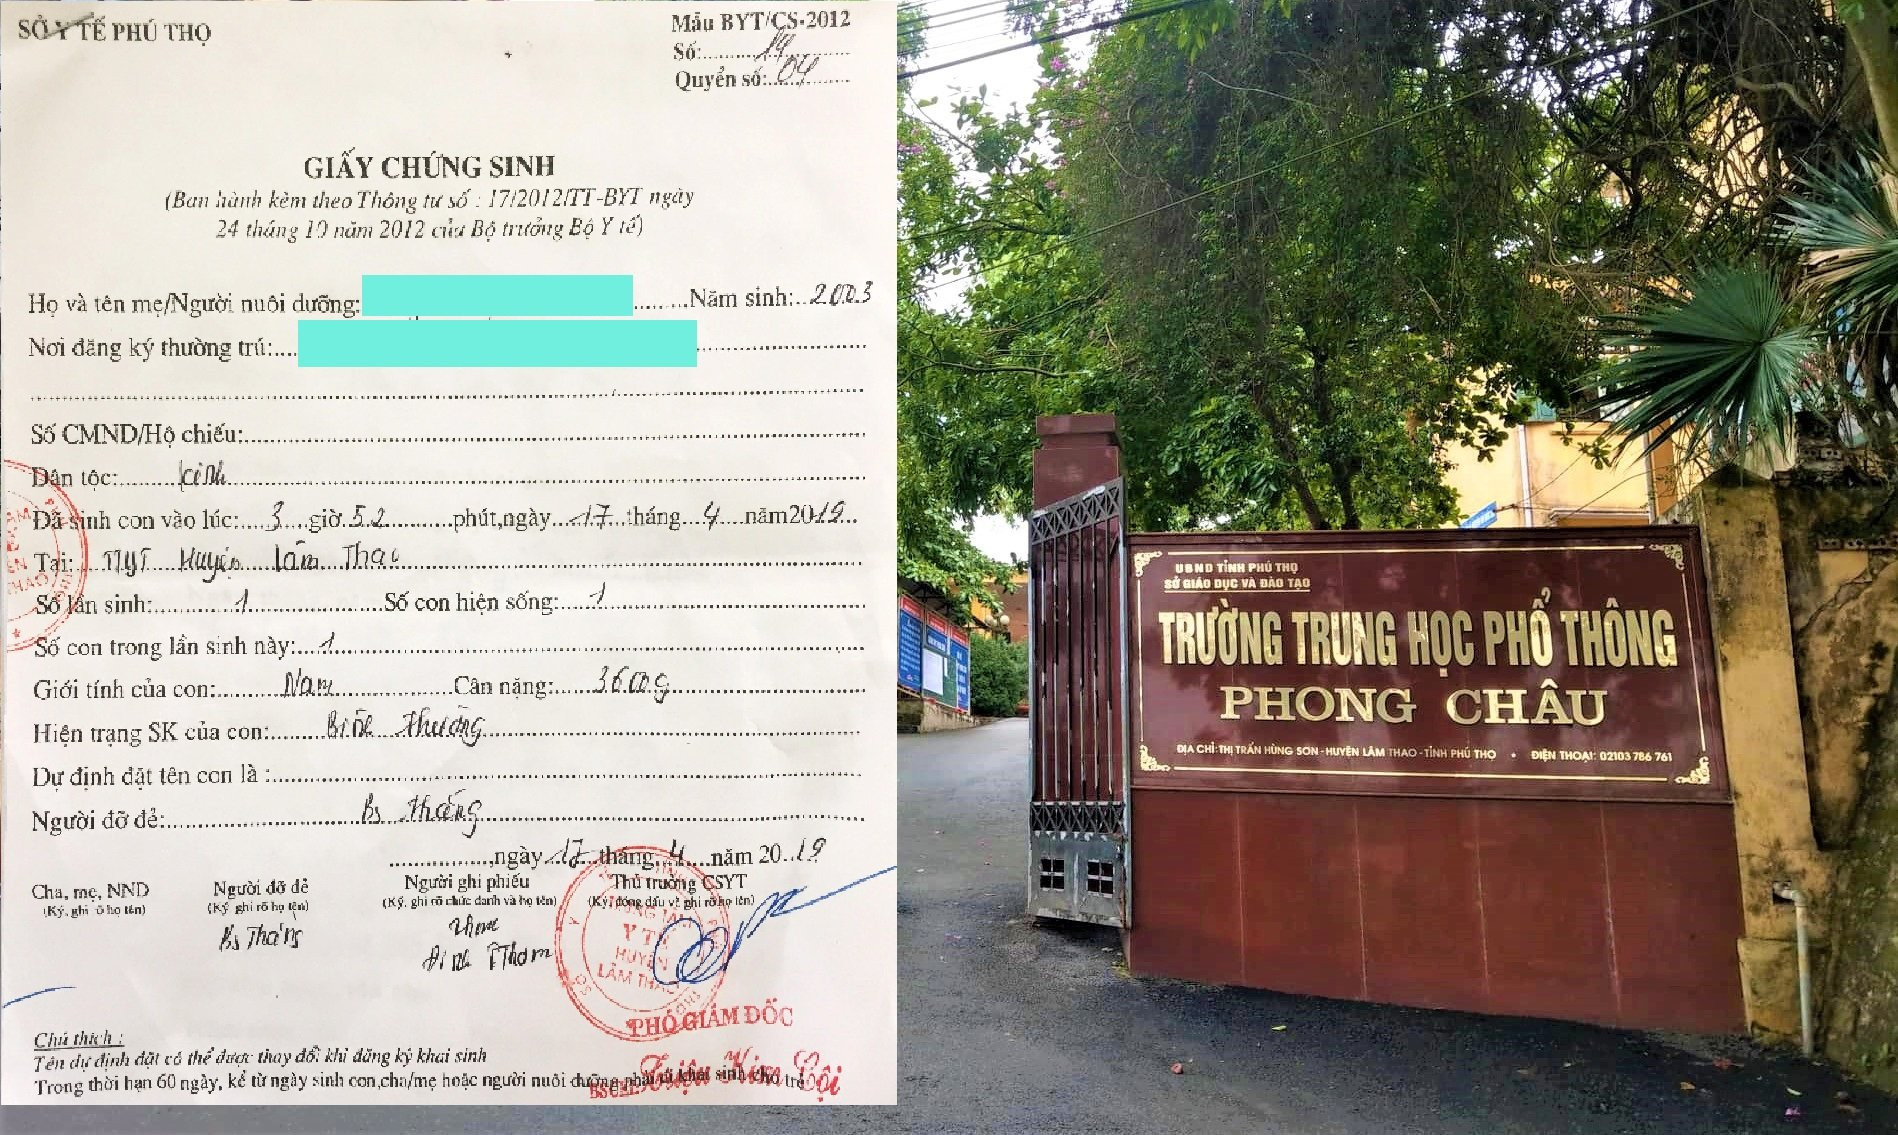 SỞ Y TẾ PHÚ THỌ
Mẫu BYT/CS-2012
Số:...........14...........
Quyển số:..04...........
GIẤY CHỨNG SINH
(Ban hành kèm theo Thông tư số : 17/2012/TT-BYT ngày
24 tháng 10 năm 2012 của Bộ trưởng Bộ Y tế)
Họ và tên mẹ/Người nuôi dưỡng: ........Năm sinh:..2003
Nơi đăng ký thường trú:....
Số CMND/Hộ chiếu:
Dân tộc:........Kinh
Đã sinh con vào lúc:...3....giờ.52.........phút,ngày..17..tháng..4....năm2019...
Tại: TTYT Huyện Lâm Thao
Số lần sinh:.........1...............Số con hiện sống:...1
Số con trong lần sinh này:...1
Giới tính của con:.......Nam...............Cân nặng:.....3600g
Hiện trạng SK của con:.......Bình thường
Dự định đặt tên con là :
Người đỡ đẻ:.......Bs Thắng
................,ngày..17...tháng..4....năm 20..19
Cha, mẹ, NND
(Ký, ghi rõ họ tên)
Người đỡ đẻ
(Ký, ghi rõ họ tên)
Bs Thắng
Người ghi phiếu
(Ký, ghi rõ chức danh và họ tên)
Đinh T Thơm
Thủ trưởng CSYT
(Ký, đóng dấu và ghi rõ họ tên)
TRUNG TÂM
Y TẾ
HUYỆN
LÂM THAO
PHÓ GIÁM ĐỐC
BSCKI. Triệu Kim Hội
Chú thích :
Tên dự định đặt có thể được thay đổi khi đăng ký khai sinh
Trong thời hạn 60 ngày, kể từ ngày sinh con,cha/mẹ hoặc người nuôi dưỡng phải đi khai sinh cho trẻ
UBND TỈNH PHÚ THỌ
SỞ GIÁO DỤC VÀ ĐÀO TẠO
TRƯỜNG TRUNG HỌC PHỔ THÔNG
PHONG CHÂU
ĐỊA CHỈ: THỊ TRẤN HÙNG SƠN - HUYỆN LÂM THAO - TỈNH PHÚ THỌ • ĐIỆN THOẠI: 02103 786 761